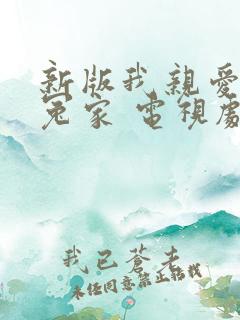 新版我親愛
冤家 電視處
我已蒼老
未经同意禁止转载